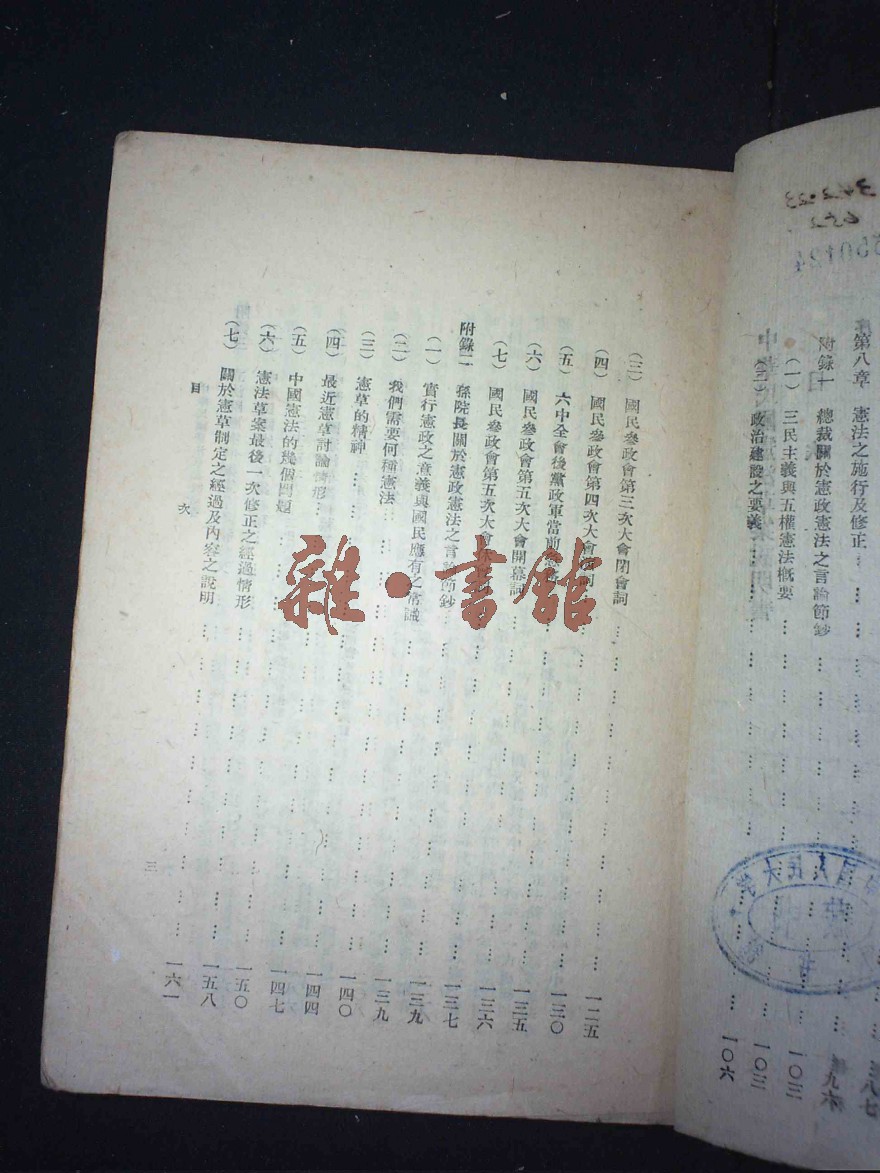 第八章 憲法之施行及修正 … 九六
附錄一 總裁關於憲政憲法之言論節鈔 … 一〇三
(一) 三民主義與五權憲法概要 … 一〇三
(二) 政治建設之要義 … 一〇六
(三) 國民參政會第三次大會閉會詞 … 一二五
(四) 國民參政會第四次大會詞 … 一三〇
(五) 六中全會後黨政軍當前 … 一三五
(六) 國民參政會第五次大會開幕詞 … 一三六
(七) 國民參政會第五次大會 … 一三七
附錄二 孫院長關於憲政憲法之言論節鈔 … 一三九
(一) 實行憲政之意義與國民應有之常識 … 一三九
(二) 我們需要何種憲法 … 一四〇
(三) 憲草的精神 … 一四四
(四) 最近憲草討論情形 … 一四七
(五) 中國憲法的幾個問題 … 一五〇
(六) 憲法草案最後一次修正之經過情形 … 一五八
(七) 關於憲草制定之經過及內容之說明 … 一六一
目 次
三
雜·書館